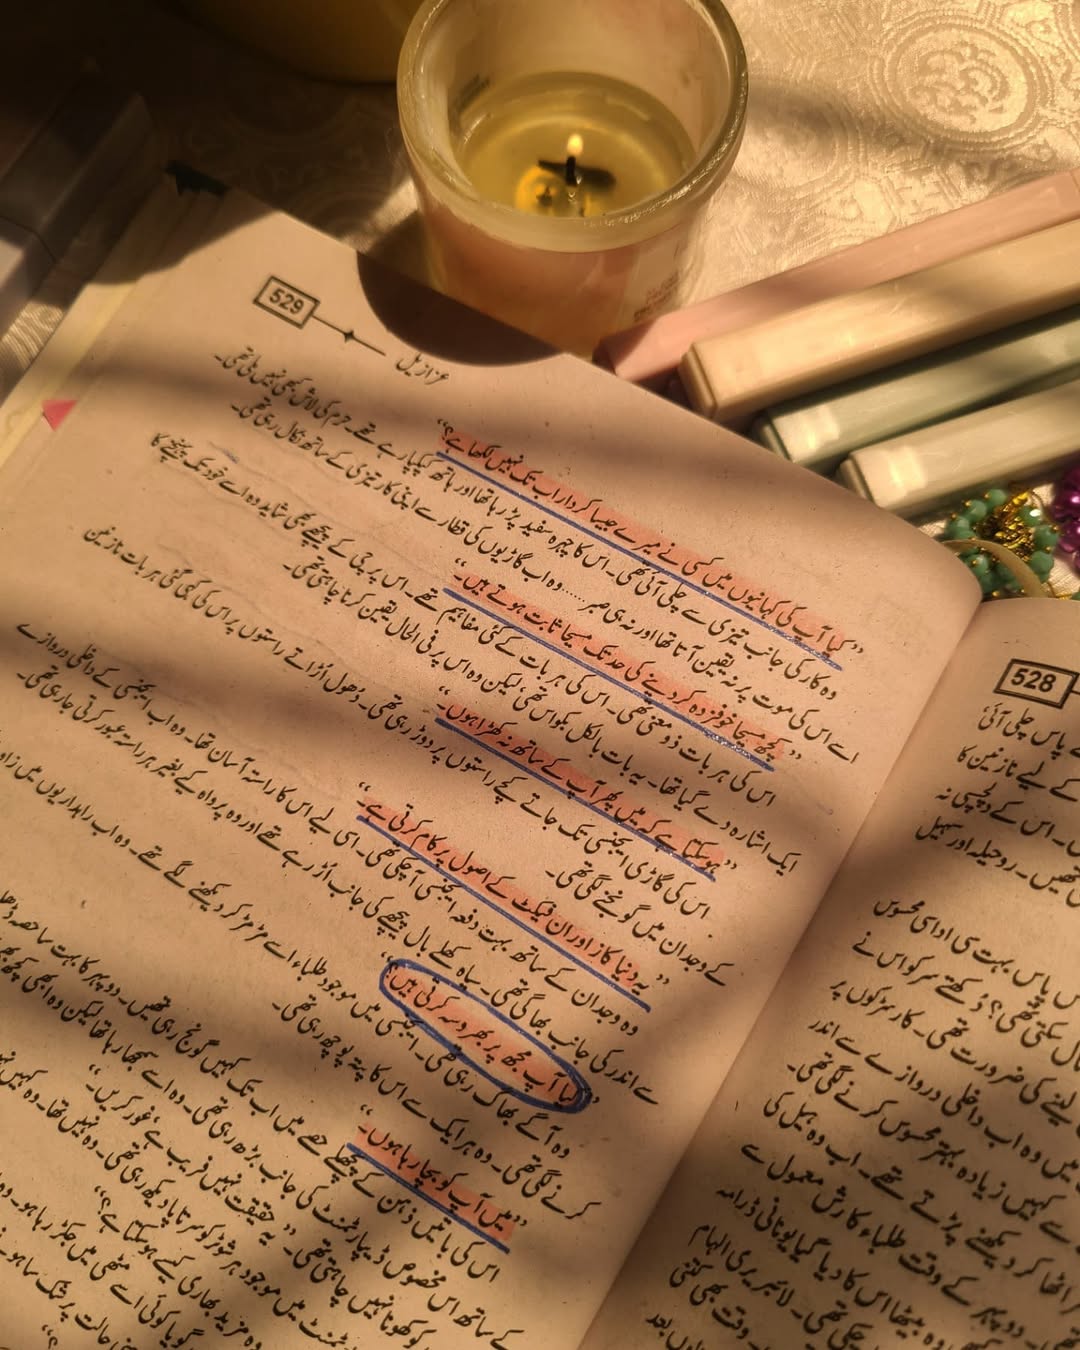 529
عزازیل
”کیا آپ کی کہانیوں میں کسی نے میرے جیسا کردار اب تک نہیں لکھا ہے؟“
وہ کار کی جانب تیزی سے چلی آئی تھی۔ اس کا چہرہ سفید پڑ رہا تھا اور ہاتھ کپکپا رہے تھے۔ حرم کی لاش بھی نہیں ملی تھی۔
اسے اس کی موت پر نہ یقین آتا تھا اور نہ ہی صبر...... وہ اب گاڑیوں کی قطار سے اپنی کار تیزی کے ساتھ نکال رہی تھی۔
”کچھ مسیحا خوفزدہ کر دینے کی حد تک مسیحا ثابت ہوتے ہیں۔“
اس کی ہر بات ذو معنی تھی۔ اس کی ہر بات کے کئی مفاہیم تھے۔ اس پر چی کے پیچھے بھی شاید وہ اسے خود تک پہنچنے کا
ایک اشارہ دے گیا تھا۔ یہ بات بالکل بکواس تھی، لیکن وہ اس پر فی الحال یقین کرنا چاہتی تھی۔
”ہو سکتا ہے کہ میں پھر آپ کے ساتھ نہ کھڑا ہوں۔“
اس کی گاڑی ایجنسی تک جاتے کچے راستوں پر دوڑ رہی تھی۔ دُھول اُڑاتے راستوں پر اس کی کہی گئی ہر بات نازنین
کے وجدان میں گونجنے لگی تھی۔
”یہ دنیا کاز اور ان فیکٹ کے اصول پر کام کرتی ہے۔“
وہ وجدان کے ساتھ بہت دفعہ ایجنسی آ چکی تھی۔ اسی لیے اس کا راستہ آسان تھا۔ وہ اب ایجنسی کے داخلی دروازے
سے اندر کی جانب بھاگی تھی۔ سیاہ کھلے بال پیچھے کی جانب اُڑ رہے تھے اور وہ پرواہ کے بغیر ہر راستہ عبور کرتی جا رہی تھی۔
”کیا آپ مجھ پر بھروسہ کرتی ہیں؟“
وہ آگے بھاگ رہی تھی۔ ایجنسی میں موجود طلباء اسے مڑ مڑ کر دیکھنے لگے تھے۔ وہ اب راہداریوں میں
کرنے لگی تھی۔ وہ ہر ایک سے اس کا پتہ پوچھ رہی تھی۔
”میں آپ کو بچا رہا ہوں۔“
اس کی باتیں ذہن کے پچھلے حصے میں اب تک کہیں گونج رہی تھیں۔ دوپہر کا بہت سا حصہ
کے ساتھ اس مخصوص ڈیپارٹمنٹ کی جانب بڑھ رہی تھی۔ وہ اسے سمجھا رہا تھا لیکن وہ ابھی کچھ
کو کھونا نہیں چاہتی تھی۔ ”یہ حقیقت نہیں فریب ہے، غور کریں۔“
موجود ہر شوڑ کو سر تا پا دیکھ رہی تھی۔ وہ نہیں تھا۔ وہ کہیں
وہ مزید بھاری کیسے ہو سکتا ہے؟“
گویا کوئی اسے مٹھی میں جکڑ رہا ہو۔
حالت پر شک سا ہونے
528
پاس چلی آئی
کے لیے نازنین کا
اس کے دلچسپی نہ
تھیں۔ روحیلہ اور سہیل
پاس بہت سی اداسی محسوس
سکتی تھی؟ دُکھتے سر کو اس نے
لینے کی ضرورت تھی۔ کار سڑکوں پر
میں وہ اب داخلی دروازے سے اندر
سے کہیں زیادہ بہتر محسوس کرنے لگی تھی۔
اٹھا کر دیکھنے پڑتے تھے۔ اب وہ ہیل کی
دوپہر کے وقت طلباء کا رش معمول سے
وہ بیٹھا اس کا دیا گیا یونانی ڈرامہ
چکی تھی۔ لائبریری الہام
وقت بھی کتنی
بعد